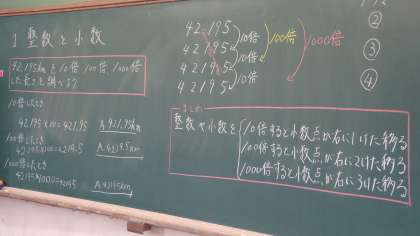 1 整数と小数
42.195kmを10倍 100倍 1000倍
した長さを調べよう
10倍したとき
42.195×10=421.95 A.421.95km
100倍したとき
42.195×100=4219.5 A.4219.5km
1000倍したとき
42.195×1000=42195 A.42195km
42.195
421.95
4219.5
42195
10倍
10倍
10倍
100倍
100倍
1000倍
②
③
④
まとめ
整数や小数を
10倍すると小数点が右に1けた移る
100倍すると小数点が右に2けた移る
1000倍すると小数点が右に3けた移る